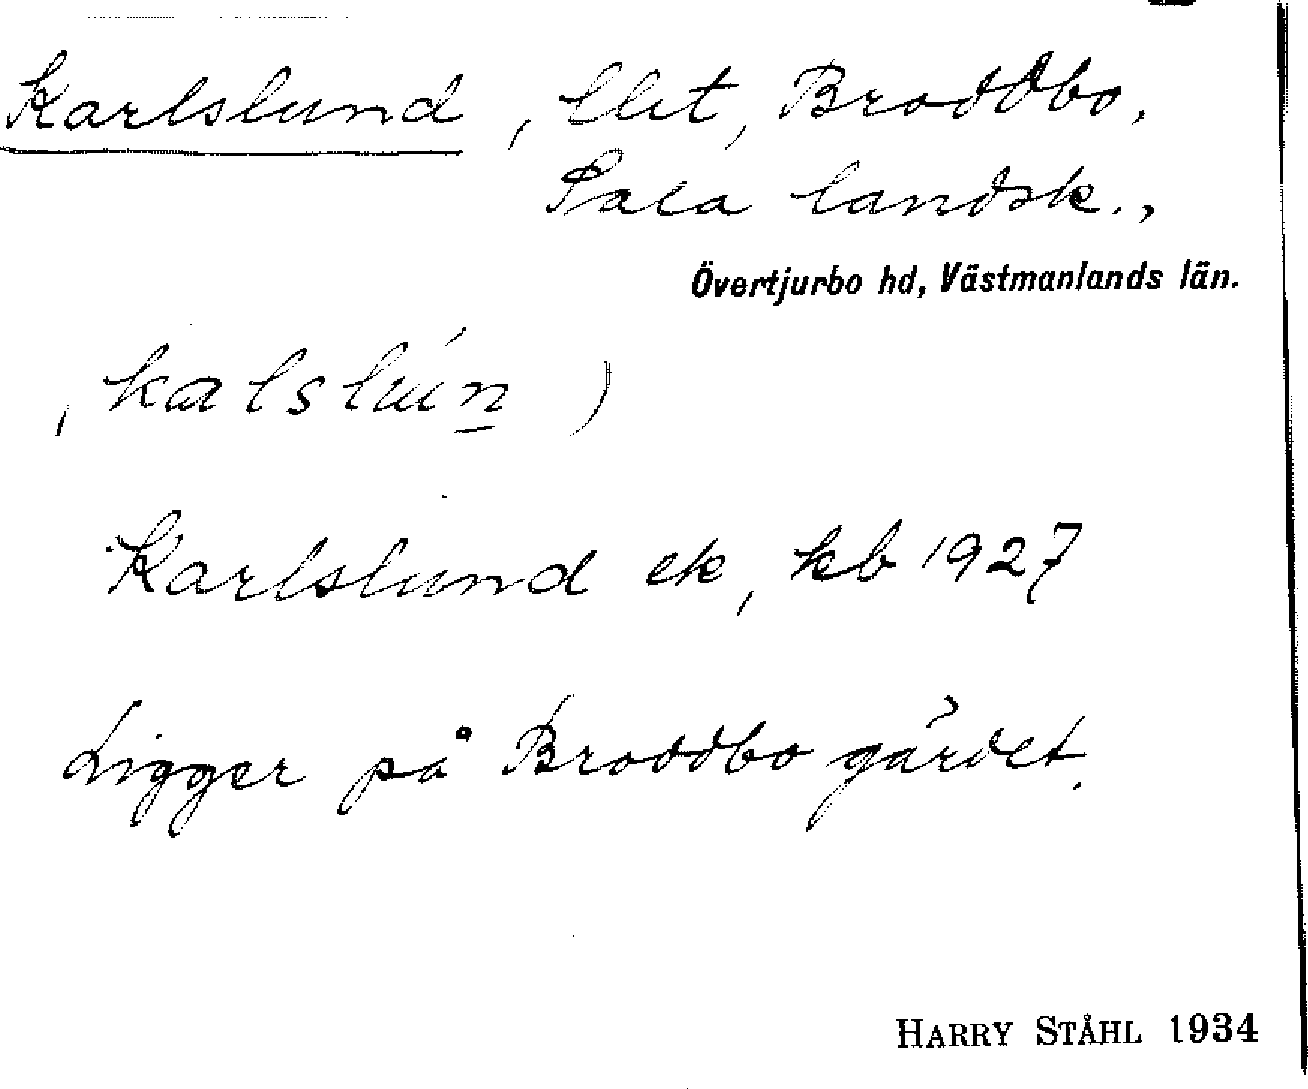 Karlslund, lht, Broddbo,
Sala landsk.,
Övertjurbo hd, Västmanlands län.
kalslún)
Karlslund ek, kb 1927
Ligger på Broddbo gärdet.
HARRY STÅHL 1934